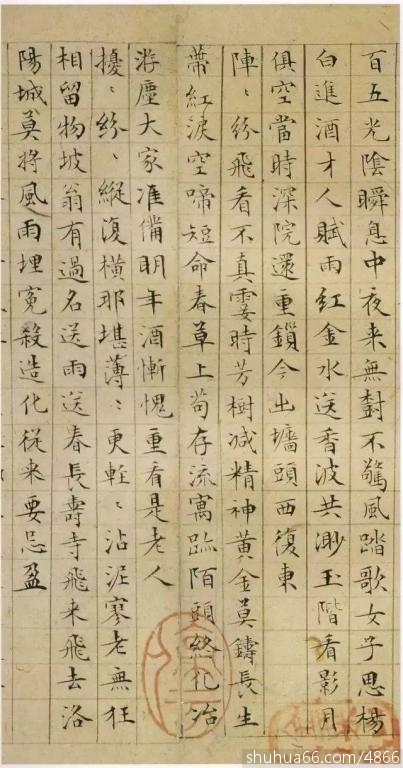 百五光陰瞬息中夜来無樹不驚風踏歌女子思楊
白進酒才人賦雨紅金水送香波共渺玉階看影月
俱空當時深院還重鎖今出墻頭西復東
陣〻紛飛看不真霎時芳樹减精神黄金莫鑄長生
蒂紅淚空啼短命春草上苟存流寓跡陌頭終化冶
游塵大家准備明年酒慚愧重看是老人
擾〻紛〻縱復横那堪薄〻更輕〻沾泥寥老無狂
相留物坡翁有過名送雨送春長壽寺飛来飛去洛
陽城莫將風雨埋冤殺造化從来要忌盈
shuhua66.com/4866